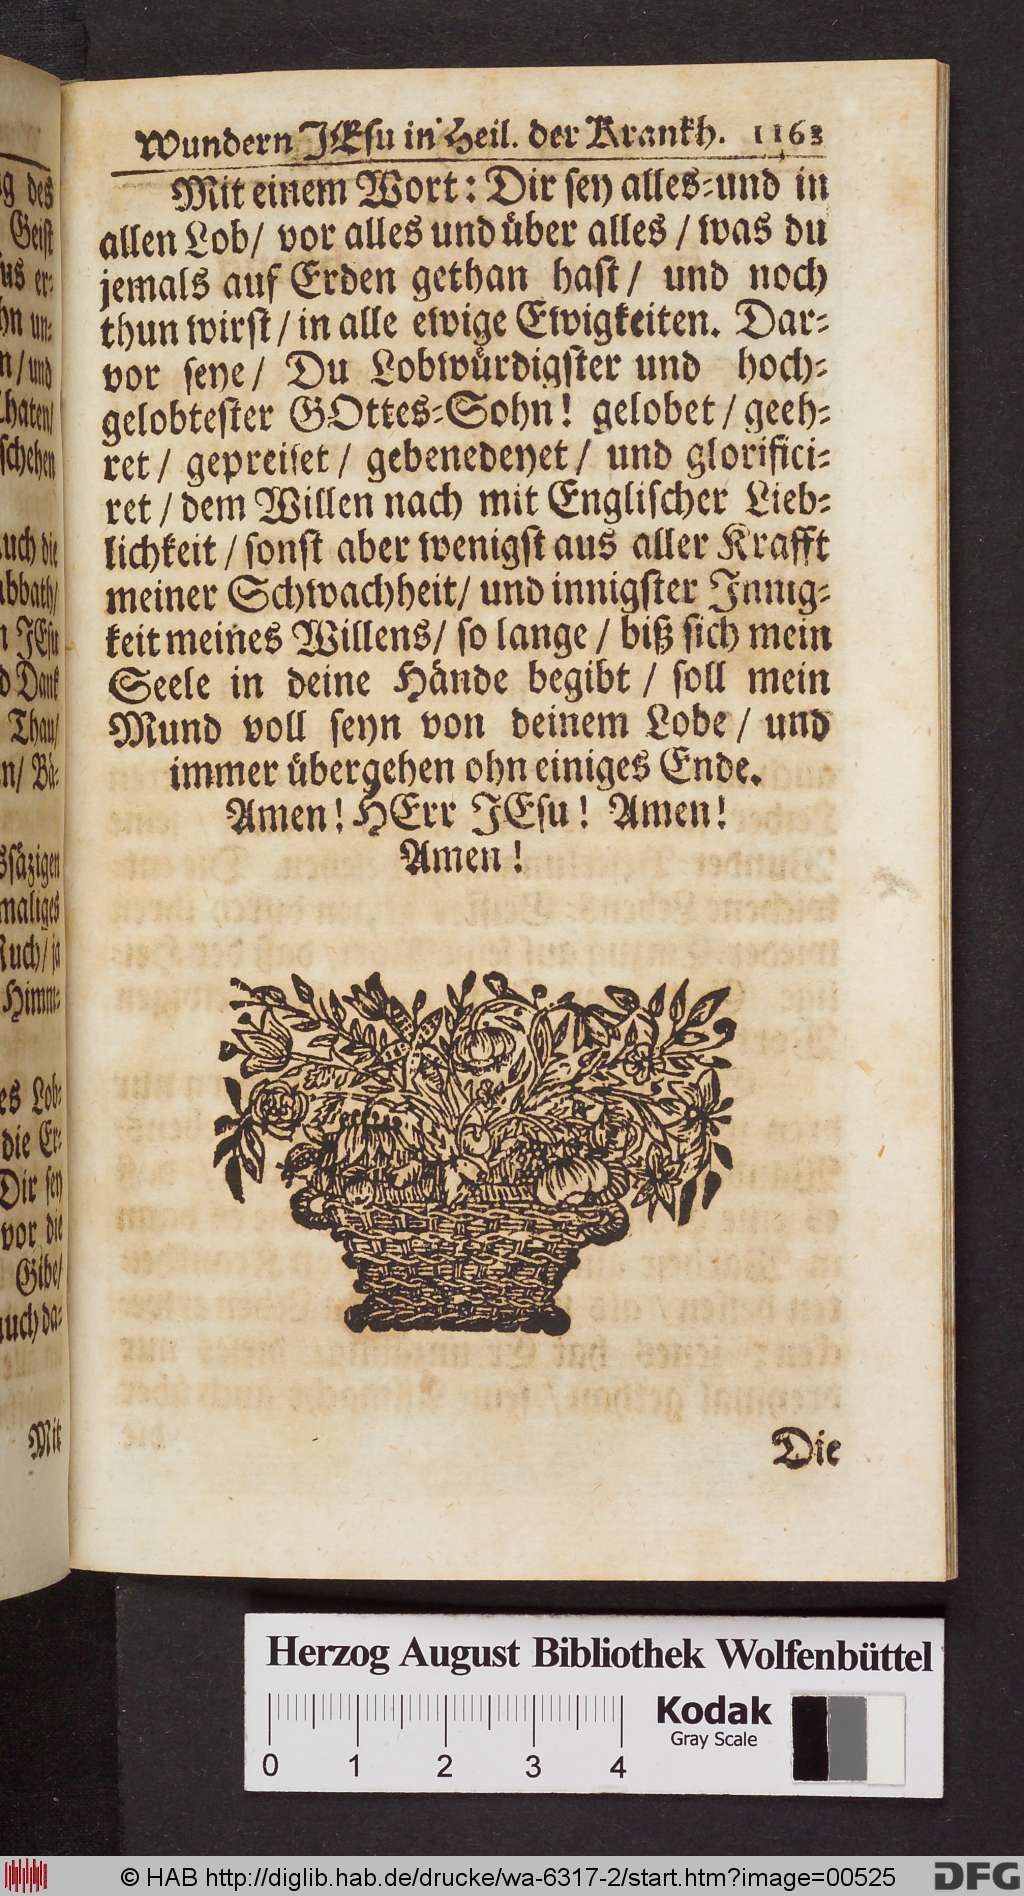 g des
Geist
us er-
hn un-
n / und
haten/
schehen
uch die
abbath/
n JEsu
d Dank
Thau/
n/ Bä-
ssäzigen
maliges
Ruch/ ja
Himm-
es Lob-
die Er-
Dir sey
vor die
Gibe/
auch da-
Mit
Wundern JEsu in Heil. der Krankh. 1163
Mit einem Wort: Dir sey alles-und in
allen Lob/ vor alles und über alles / was du
jemals auf Erden gethan hast/ und noch
thun wirst / in alle ewige Ewigkeiten. Dar-
vor seye/ Du Lobwürdigster und hoch-
gelobtester GOttes-Sohn! gelobet / geeh-
ret / gepreiset / gebenedeyet / und glorifici-
ret / dem Willen nach mit Englischer Lieb-
lichkeit / sonst aber wenigst aus aller Krafft
meiner Schwachheit/ und innigster Innig-
keit meines Willens/ so lange / biß sich mein
Seele in deine Hände begibt / soll mein
Mund voll seyn von deinem Lobe / und
immer übergehen ohn einiges Ende.
Amen! HErr JEsu! Amen!
Amen!
Die
Herzog August Bibliothek Wolfenbüttel
Kodak
Gray Scale
0 1 2 3 4
© HAB http://diglib.hab.de/drucke/wa-6317-2/start.htm?image=00525
DFG